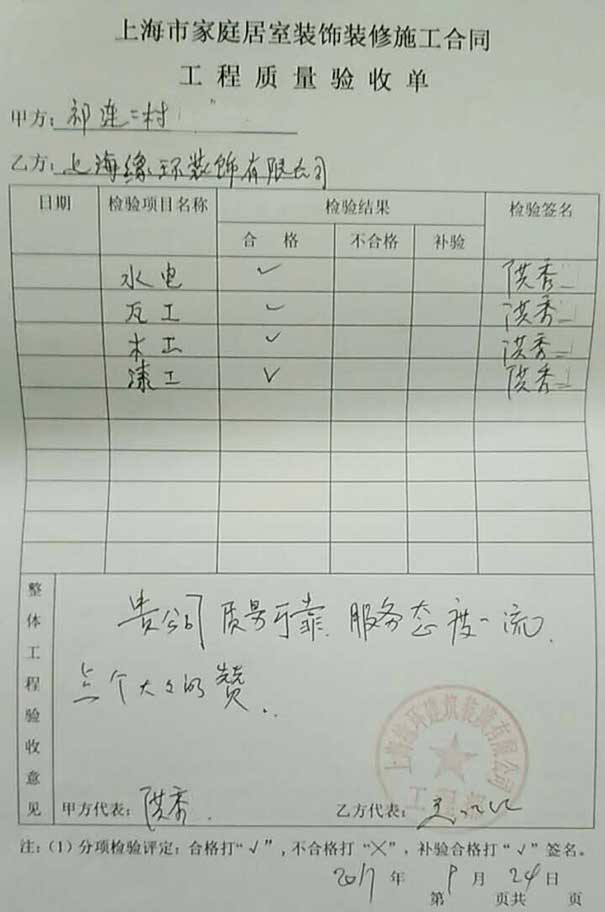 上海市家庭居室装饰装修施工合同
工程质量验收单
甲方：祁连二村
乙方：上海缘环装饰有限公司
日期 检验项目名称 检验结果 检验签名
合格 不合格 补验
水电 ✓ 洪秀
瓦工 ✓ 洪秀
木工 ✓ 洪秀
漆工 ✓ 洪秀
整体工程验收意见
贵公司质量可靠 服务态度一流.
点个大大的赞.
上海缘环建筑装潢有限公司
甲方代表：洪秀
乙方代表：
注：（1）分项检验评定：合格打“√”，不合格打“╳”，补验合格打“√”签名。
2017年9月24日
第 页共 页